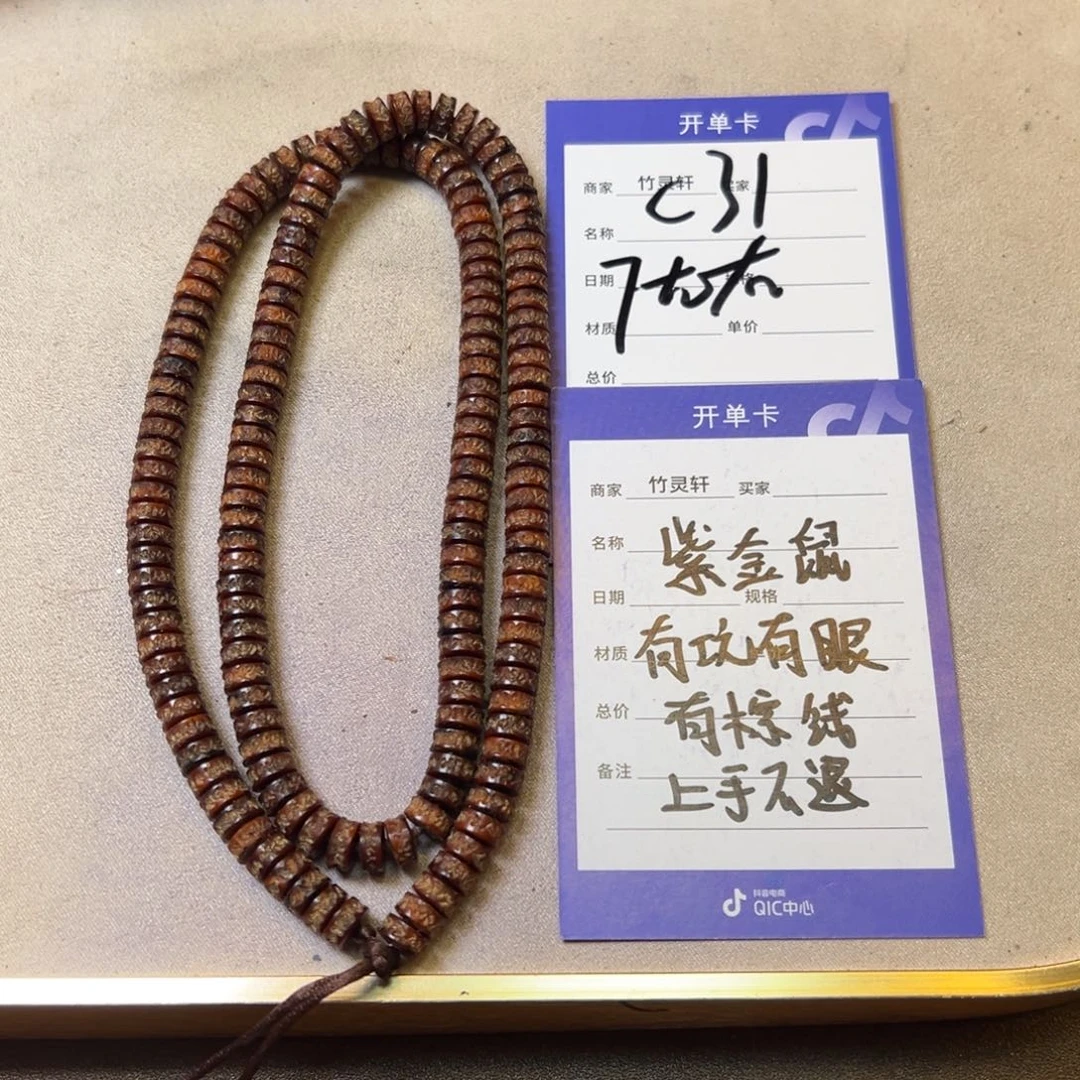 开单卡
商家 竹灵轩 买家
c31
名称
日期
7
材质 单价
总价
开单卡
商家 竹灵轩 买家
名称 紫金鼠
日期 规格
材质 有坑有眼
总价 有棕线
备注 上手不退
抖音电商
QIC中心